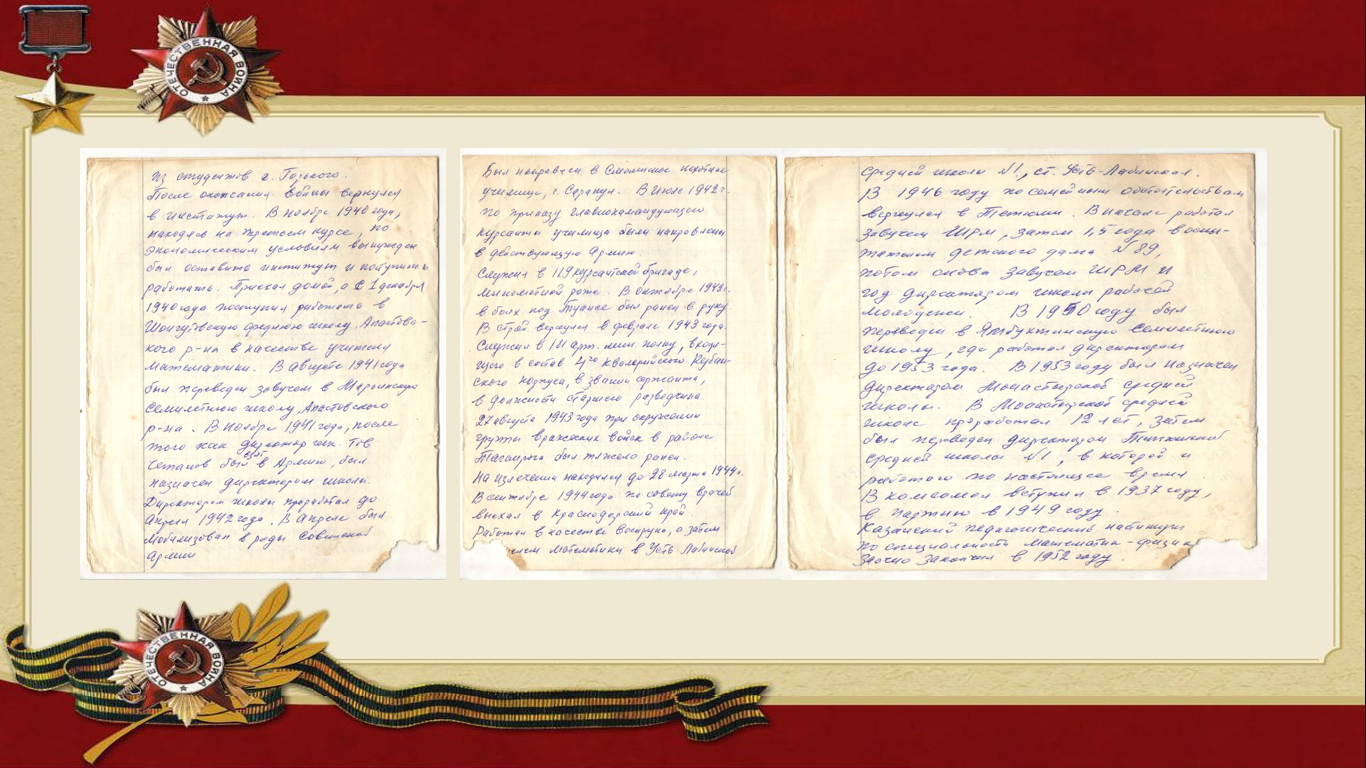 ОТЕЧЕСТВЕННАЯ ВОЙНА
Из студентов г. Горького.
После окончания войны вернулся
в институт. В ноябре 1940 года,
находясь на третьем курсе, по
экономическим условиям вынужден
был оставить институт и поступить
работать. Приехал домой, с 1 декабря
1940 года поступил работать в
среднюю школу, Апастов-
кого р-на в качестве учителя
математики. В августе 1941 года
был переведен завучем в
семилетнюю школу, Апастовского
р-на. В ноябре 1941 года, после
того как директор шк. Тов
Степанов был взят в Армию, был
назначен директором школы.
Директором школы проработал до
Апреля 1942 года. В Апреле был
мобилизован в ряды Советской
Армии
Был направлен в Смоленское пехотное
училище, г. Сарапул. В Июле 1942 г.
по приказу главнокомандующего
курсанты училища были направлены
в действующую Армию.
Служил в 119 курсантской бригаде,
миномётной роте. В октябре 1942 г.
в боях под Туапсе был ранен в руку.
В строй вернулся в феврале 1943 года.
Служил в 181 арт. мин. полку, входя-
щего в состав 4го Кавалерийского Кубан-
ского корпуса, в звании сержанта,
в должности старшего разведчика
27 августа 1943 года при окружении
группы вражеских войск в районе
Таганрога был тяжело ранен.
На излечении находился до 28 марта 1944 г.
В сентябре 1944 года по совету врачей
выехал в Краснодарский край.
Работал в качестве военрука, а затем
математики в Усть-Лабинской
средней школы №1, ст. Усть-Лабинская.
В 1946 году по семейным обстоятельствам
вернулся в Тетюши. В начале работал
завучем ШРМ, затем 1,5 года воспи-
тателем детского дома №89,
потом снова завучем ШРМ и
год директором школы рабочей
молодежи. В 1950 году был
переведен в семилетнюю
школу, где работал директором
до 1953 года. В 1953 году был назначен
директором Монастырской средней
школы. В Монастырской средней
школе проработал 12 лет, затем
был переведен директором Тетюшской
средней школы №1, в которой и
работаю по настоящее время.
В комсомол вступил в 1937 году,
в партию в 1949 году.
Казанский педагогический институт
по специальности математика-физика
заочно закончил в 1952 году.
ОТЕЧЕСТВЕННАЯ ВОЙНА